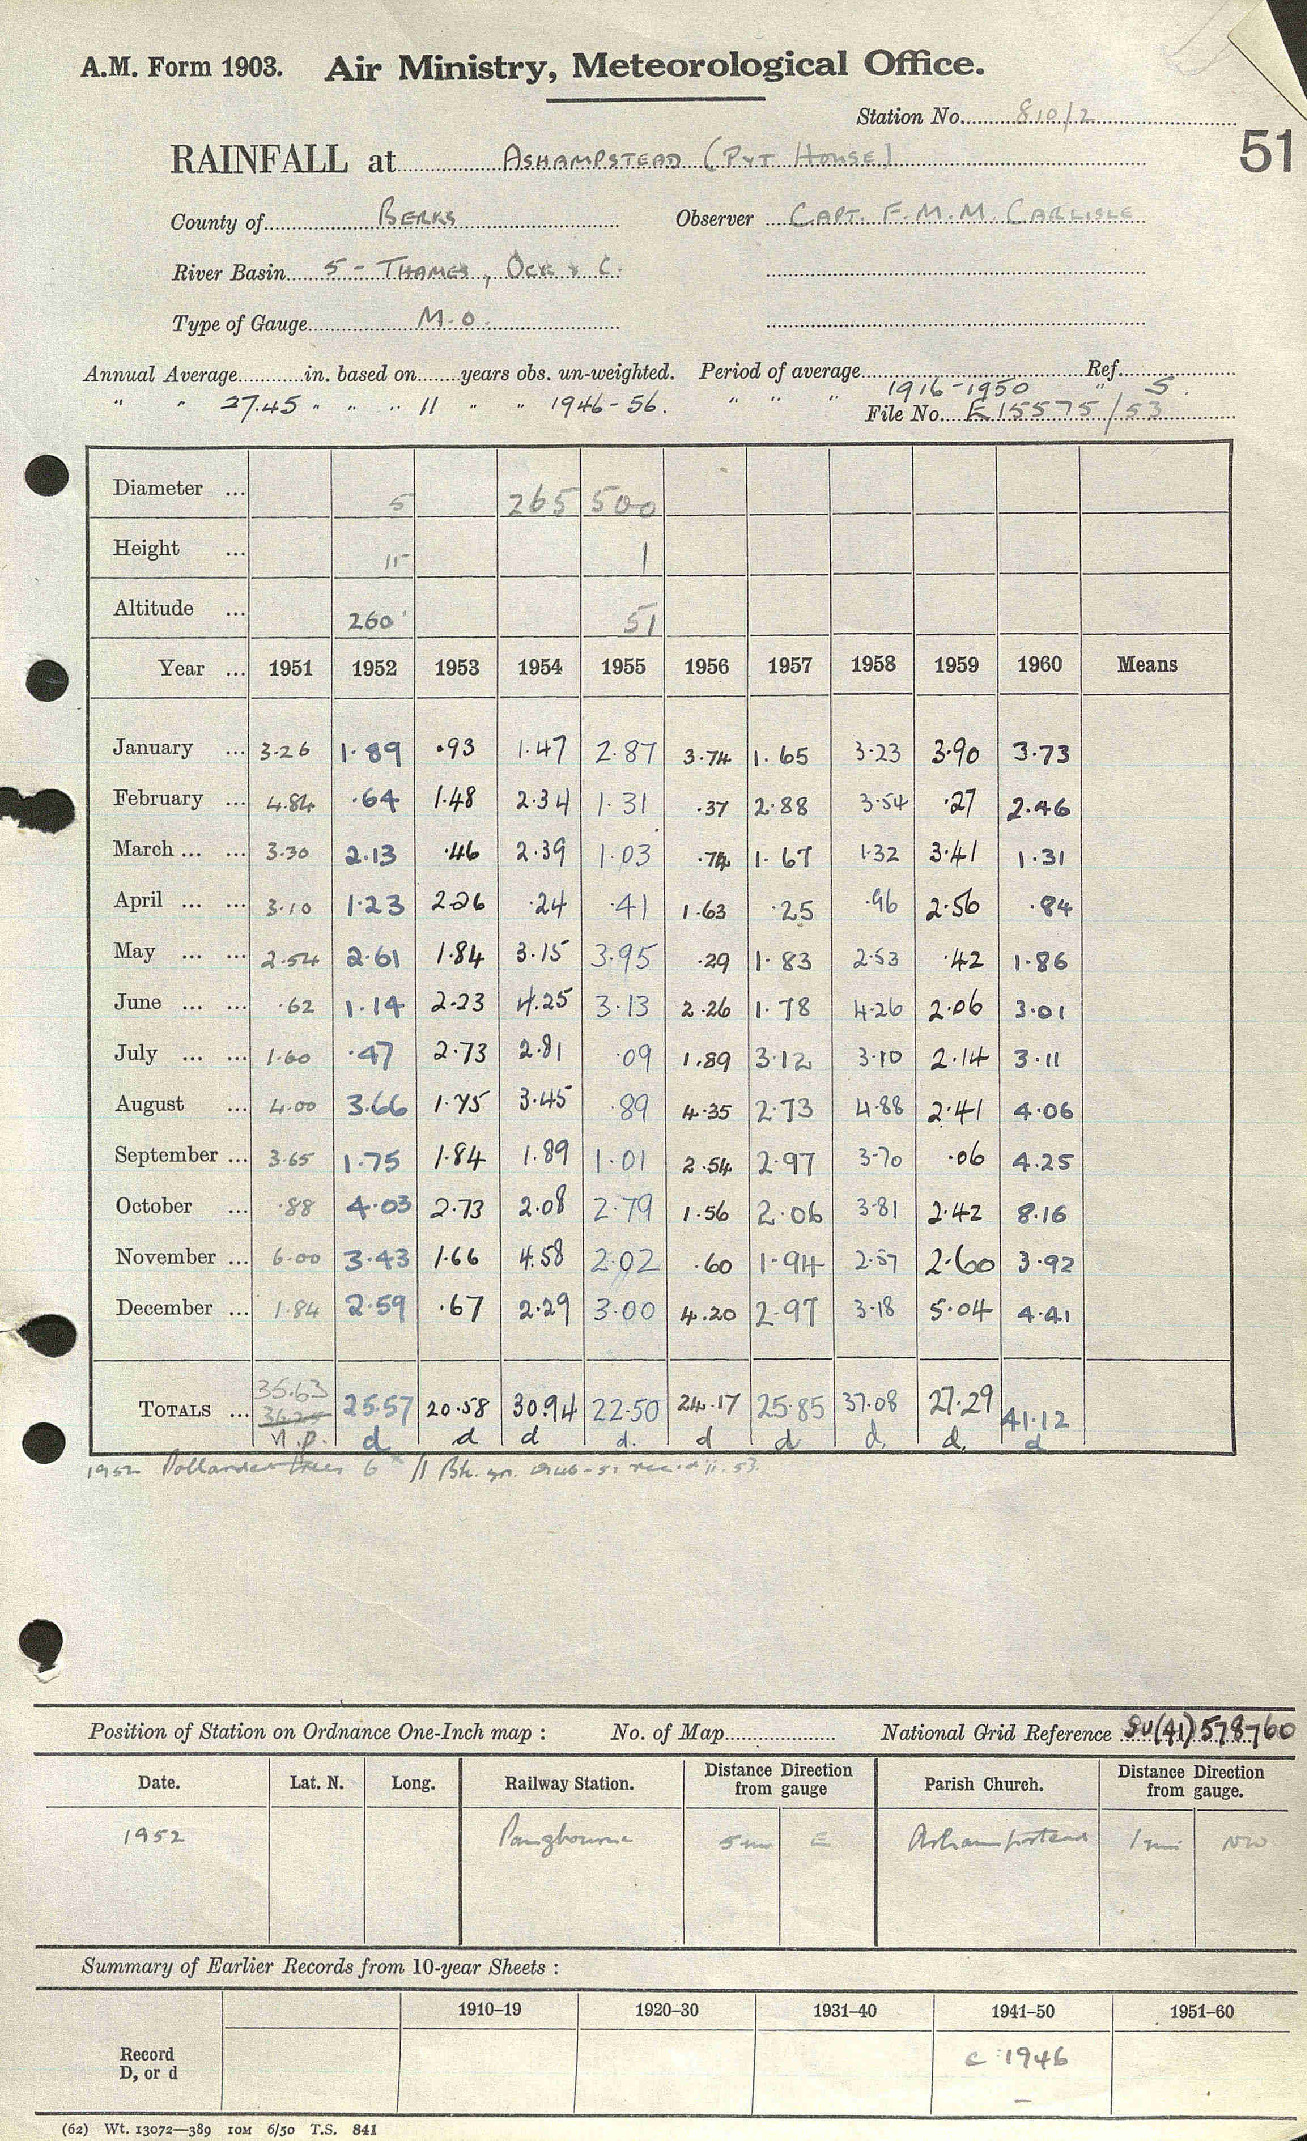 A.M. Form 1903. Air Ministry, Meteorological Office.
Station No. 810/2
51
RAINFALL at ASHAMPSTEAD (PYT HOUSE)
County of BERKS Observer CAPT. F.M.M. CARLISLE
River Basin 5 - THAMES, OCK & C.
Type of Gauge M.O.
Annual Average in. based on years obs. un-weighted. Period of average Ref.
" " 27.45 " " " 11 " " 1946-56. " " " 1916-1950 " S.
File No. E15575/53
Diameter ... 5 265 500
Height ... 11 1
Altitude ... 260' 51
Year ... 1951 1952 1953 1954 1955 1956 1957 1958 1959 1960 Means
January ... 3.26 1.89 .93 1.47 2.87 3.74 1.65 3.23 3.90 3.73
February ... 4.84 .64 1.48 2.34 1.31 .37 2.88 3.54 .27 2.46
March ... ... 3.30 2.13 .46 2.39 1.03 .74 1.67 1.32 3.41 1.31
April ... ... 3.10 1.23 2.26 .24 .41 1.63 .25 .96 2.56 .84
May ... ... 2.54 2.61 1.84 3.15 3.95 .29 1.83 2.53 .42 1.86
June ... ... .62 1.14 2.23 4.25 3.13 2.26 1.78 4.26 2.06 3.01
July ... ... 1.60 .47 2.73 2.81 .09 1.89 3.12 3.10 2.14 3.11
August ... 4.00 3.66 1.75 3.45 .89 4.35 2.73 4.88 2.41 4.06
September ... 3.65 1.75 1.84 1.89 1.01 2.54 2.97 3.70 .06 4.25
October ... .88 4.03 2.73 2.08 2.79 1.56 2.06 3.81 2.42 8.16
November ... 6.00 3.43 1.66 4.58 2.02 .60 1.94 2.57 2.60 3.92
December ... 1.84 2.59 .67 2.29 3.00 4.20 2.97 3.18 5.04 4.41
TOTALS ... 35.63 25.57 20.58 30.94 22.50 24.17 25.85 37.08 27.29 41.12
n.p. d d d d. d d d. d. d
1952 Pollarded trees 6 // Bk. 1946-51 rec.d 11.53.
Position of Station on Ordnance One-Inch map : No. of Map National Grid Reference SU(41)578760
Date. Lat. N. Long. Railway Station. Distance Direction from gauge Parish Church. Distance Direction from gauge.
1952 Pangbourne 5 mi E Ashampstead 1 mi NW
Summary of Earlier Records from 10-year Sheets :
1910–19 1920–30 1931–40 1941–50 1951–60
Record D, or d c 1946
(62) Wt. 13072—389 10M 6/50 T.S. 841